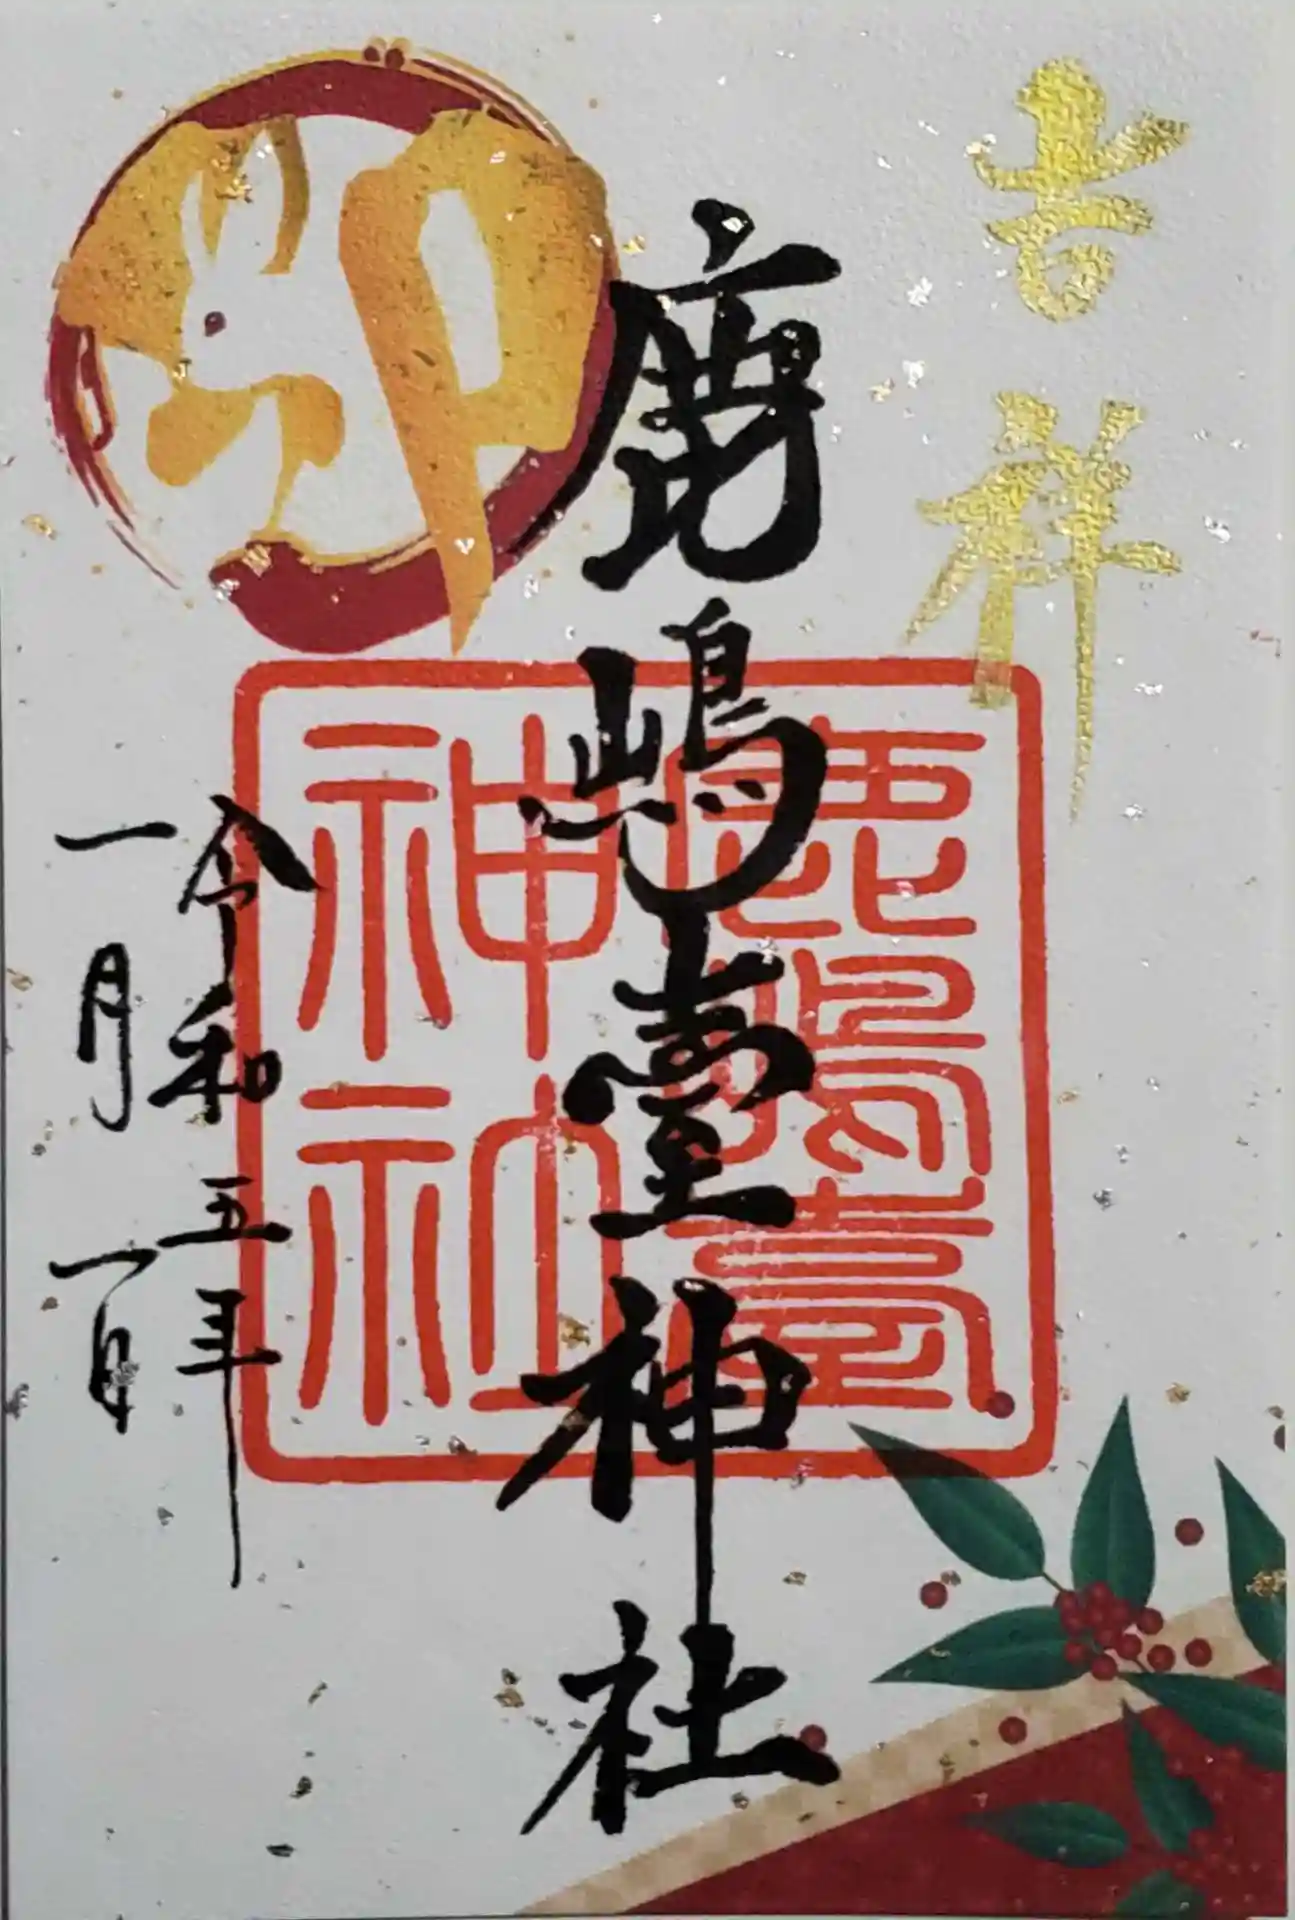 吉祥
鹿嶋臺神社
鹿嶋臺
神社
卯
令和五年
一月一日